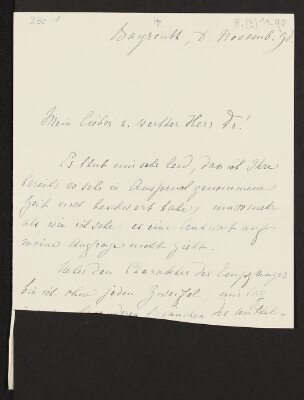 260 1
8.(?)11.90
Bayreuth, d. Novemb. 90.
Mein lieber u. werther Herr Dr!
Es thut mir sehr leid, dass ich Ihre
bereits so sehr in Anspruch genommene
Zeit noch beschwert habe, nunmehr
als wie ich sehe es eine Antwort auf
meine Anfrage nicht giebt.
Ueber den Charakter des Empfanges
bin ich ohne jeden Zweifel, mir lag
besonderen